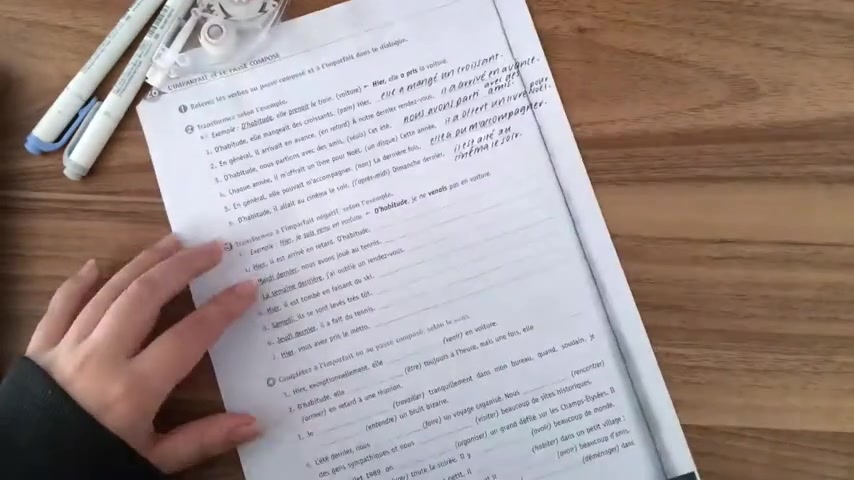 L'IMPARFAIT ET LE PASSÉ COMPOSÉ
1 Relevez les verbes au passé composé et à l'imparfait dans le dialogue.
2 Transformez selon l'exemple.
Exemple : D'habitude, elle prenait le train. (voiture) → Hier, elle a pris la voiture.
1. D'habitude, elle mangeait des croissants. (pain) Hier, elle a mangé un croissant.
2. En général, il arrivait en avance. (en retard) À notre dernier rendez-vous, il a arrivé en avance.
3. D'habitude, nous partions avec des amis. (seuls) Cet été, nous avons parti avec des amis.
4. Chaque année, il m'offrait un livre pour Noël. (un disque) Cette année, il a offert un livre pour Noël.
5. En général, elle pouvait m'accompagner. (non) La dernière fois, elle a pu m'accompagner.
6. D'habitude, il allait au cinéma le soir. (l'après-midi) Dimanche dernier, il est allé au cinéma le soir.
3 Transformez à l'imparfait négatif, selon l'exemple.
Exemple : Hier, je suis venu en voiture. → D'habitude, je ne venais pas en voiture.
1. Hier, il est arrivé en retard. D'habitude,
2. Mardi dernier, nous avons joué au tennis.
3. La semaine dernière, j'ai oublié un rendez-vous.
4. Hier, il est tombé en faisant du ski.
5. Samedi, ils se sont levés très tôt.
6. Jeudi dernier, il a fait du tennis.
7. Hier, vous avez pris le métro.
4 Complétez à l'imparfait ou au passé composé, selon le sens.
1. Hier, exceptionnellement, elle (venir) en voiture.
2. D'habitude, elle (être) toujours à l'heure, mais une fois, elle
(arriver) en retard à une réunion.
3. Je (travailler) tranquillement dans mon bureau, quand, soudain, je
(entendre) un bruit bizarre.
4. L'été dernier, nous (faire) un voyage organisé. Nous (rencontrer)
des gens sympathiques et nous (visiter) beaucoup de sites historiques.
juillet 1989, on (organiser) un grand défilé sur les Champs-Élysées. Il
toute la soirée. Il y (avoir) beaucoup de monde.
petit, il (habiter) dans un petit village ;
(avoir) beaucoup d'amis.
(déménager) dans